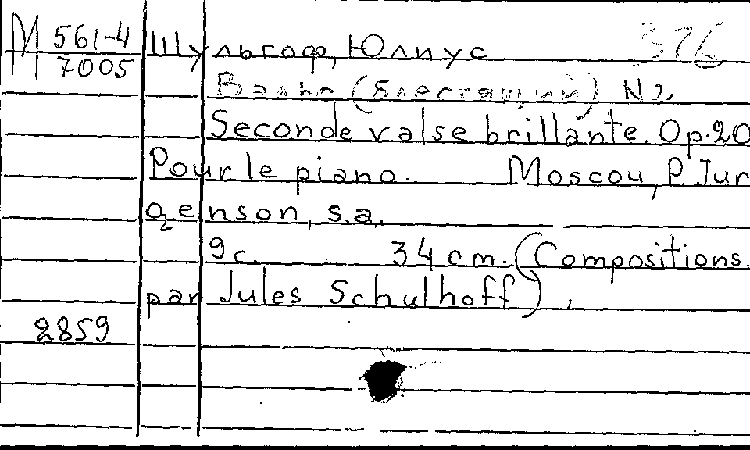 М 561-4 Шульгоф, Юлиус 376
7005
Вальс (блестящий) N2.
Seconde valse brillante. Op.20
Pour le piano. Moscou, P. Jur
genson, s.a.
9с. 34 cm. (Compositions
par Jules Schulhoff).
2859